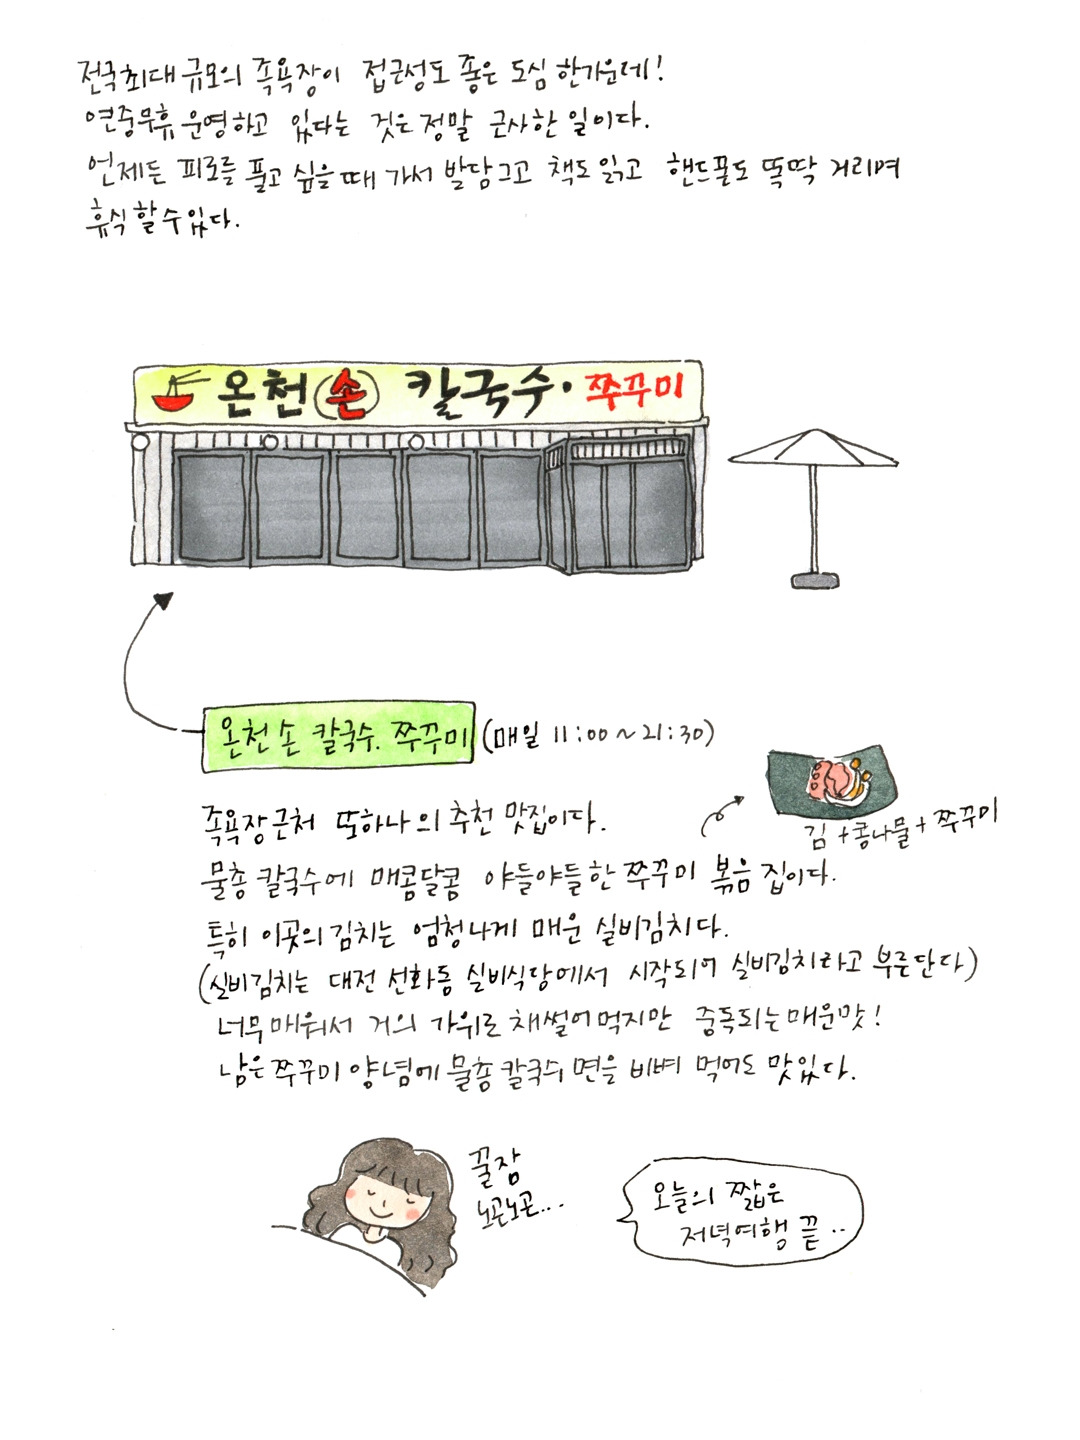 전국최대 규모의 족욕장이 접근성도 좋은 도심 한가운데!
연중무휴 운영하고 있다는 것은 정말 근사한 일이다.
언제든 피로를 풀고 싶을때 가서 발담그고 책도 읽고 핸드폰도 뚝딱 거리며
휴식 할 수 있다.
온천 손 칼국수·쭈꾸미
온천 손 칼국수. 쭈꾸미 (매일 11:00~21:30)
족욕장 근처 또하나의 추천 맛집이다.
김+콩나물+쭈꾸미
물총 칼국수에 매콤달콤 야들야들한 쭈꾸미 볶음 집이다.
특히 이곳의 김치는 엄청나게 매운 실비김치다.
(실비김치는 대전 선화동 실비식당에서 시작되어 실비김치라고 부른단다)
너무 매워서 거의 가위로 채썰어 먹지만 중독되는 매운맛!
남은 쭈꾸미 양념에 물총 칼국수 면을 비벼 먹어도 맛있다.
꿀잠
노곤노곤...
오늘의 짧은
저녁여행 끝..